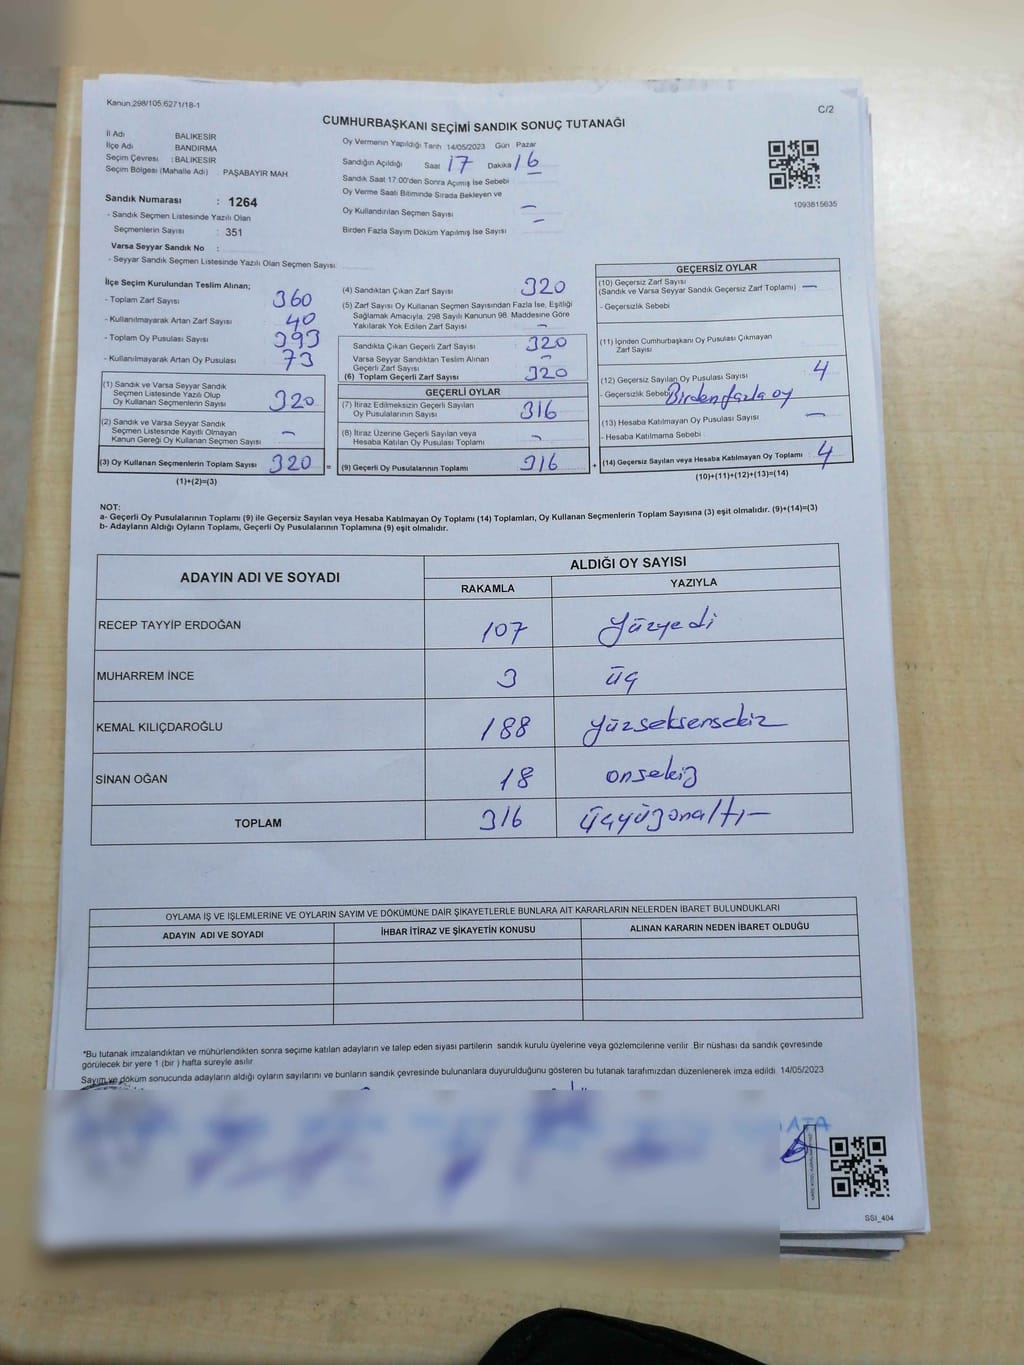 Kanun,298/105,6271/18-1
C/2
CUMHURBAŞKANI SEÇİMİ SANDIK SONUÇ TUTANAĞI
İl Adı BALIKESİR
İlçe Adı BANDIRMA
Seçim Çevresi : BALIKESİR
Seçim Bölgesi (Mahalle Adı) : PAŞABAYIR MAH.
Oy Vermenin Yapıldığı Tarih 14/05/2023 Gün Pazar
Sandığın Açıldığı Saat 17 Dakika 16
Sandık Saat 17:00'den Sonra Açımış İse Sebebi
Oy Verme Saati Bitiminde Sırada Bekleyen ve
Oy Kullandırılan Seçmen Sayısı –
Birden Fazla Sayım Döküm Yapılmış İse Sayısı –
1093815635
Sandık Numarası : 1264
- Sandık Seçmen Listesinde Yazılı Olan
Seçmenlerin Sayısı : 351
Varsa Seyyar Sandık No :
- Seyyar Sandık Seçmen Listesinde Yazılı Olan Seçmen Sayısı:
İlçe Seçim Kurulundan Teslim Alınan;
- Toplam Zarf Sayısı 360
- Kullanılmayarak Artan Zarf Sayısı 40
- Toplam Oy Pusulası Sayısı 393
- Kullanılmayarak Artan Oy Pusulası 73
(1) Sandık ve Varsa Seyyar Sandık
Seçmen Listesinde Yazılı Olup
Oy Kullanan Seçmenlerin Sayısı 320
(2) Sandık ve Varsa Seyyar Sandık
Seçmen Listesinde Kayıtlı Olmayan
Kanun Gereği Oy Kullanan Seçmen Sayısı –
(3) Oy Kullanan Seçmenlerin Toplam Sayısı 320 =
(1)+(2)=(3)
(4) Sandıktan Çıkan Zarf Sayısı 320
(5) Zarf Sayısı Oy Kullanan Seçmen Sayısından Fazla İse, Eşitliği
Sağlamak Amacıyla, 298 Sayılı Kanunun 98. Maddesine Göre
Yakılarak Yok Edilen Zarf Sayısı –
Sandıkta Çıkan Geçerli Zarf Sayısı 320
Varsa Seyyar Sandıktan Teslim Alınan
Geçerli Zarf Sayısı –
(6) Toplam Geçerli Zarf Sayısı 320
GEÇERLİ OYLAR
(7) İtiraz Edilmeksizin Geçerli Sayılan
Oy Pusulalarının Sayısı 316
(8) İtiraz Üzerine Geçerli Sayılan veya
Hesaba Katılan Oy Pusulası Toplamı –
(9) Geçerli Oy Pusulalarının Toplamı 316 +
GEÇERSİZ OYLAR
(10) Geçersiz Zarf Sayısı
(Sandık ve Varsa Seyyar Sandık Geçersiz Zarf Toplamı) –
- Geçersizlik Sebebi
(11) İçinden Cumhurbaşkanı Oy Pusulası Çıkmayan
Zarf Sayısı
(12) Geçersiz Sayılan Oy Pusulası Sayısı 4
- Geçersizlik Sebebi Birden fazla oy
(13) Hesaba Katılmayan Oy Pusulası Sayısı –
- Hesaba Katılmama Sebebi
(14) Geçersiz Sayılan veya Hesaba Katılmayan Oy Toplamı 4
(10)+(11)+(12)+(13)=(14)
NOT:
a- Geçerli Oy Pusulalarının Toplamı (9) ile Geçersiz Sayılan veya Hesaba Katılmayan Oy Toplamı (14) Toplamları, Oy Kullanan Seçmenlerin Toplam Sayısına (3) eşit olmalıdır. (9)+(14)=(3)
b- Adayların Aldığı Oyların Toplamı, Geçerli Oy Pusulalarının Toplamına (9) eşit olmalıdır.
ADAYIN ADI VE SOYADI
ALDIĞI OY SAYISI
RAKAMLA YAZIYLA
RECEP TAYYİP ERDOĞAN 107 yüzyedi
MUHARREM İNCE 3 üç
KEMAL KILIÇDAROĞLU 188 yüzseksensekiz
SİNAN OĞAN 18 onsekiz
TOPLAM 316 üçyüzonaltı –
OYLAMA İŞ VE İŞLEMLERİNE VE OYLARIN SAYIM VE DÖKÜMÜNE DAİR ŞİKAYETLERLE BUNLARA AİT KARARLARIN NELERDEN İBARET BULUNDUKLARI
ADAYIN ADI VE SOYADI İHBAR İTİRAZ VE ŞİKAYETİN KONUSU ALINAN KARARIN NEDEN İBARET OLDUĞU
*Bu tutanak imzalandıktan ve mühürlendikten sonra seçime katılan adayların ve talep eden siyasi partilerin sandık kurulu üyelerine veya gözlemcilerine verilir. Bir nüshası da sandık çevresinde
görülecek bir yere 1 (bir ) hafta süreyle asılır.
Sayım ve döküm sonucunda adayların aldığı oyların sayılarını ve bunların sandık çevresinde bulunanlara duyurulduğunu gösteren bu tutanak tarafımızdan düzenlenerek imza edildi. 14/05/2023
SSI_404